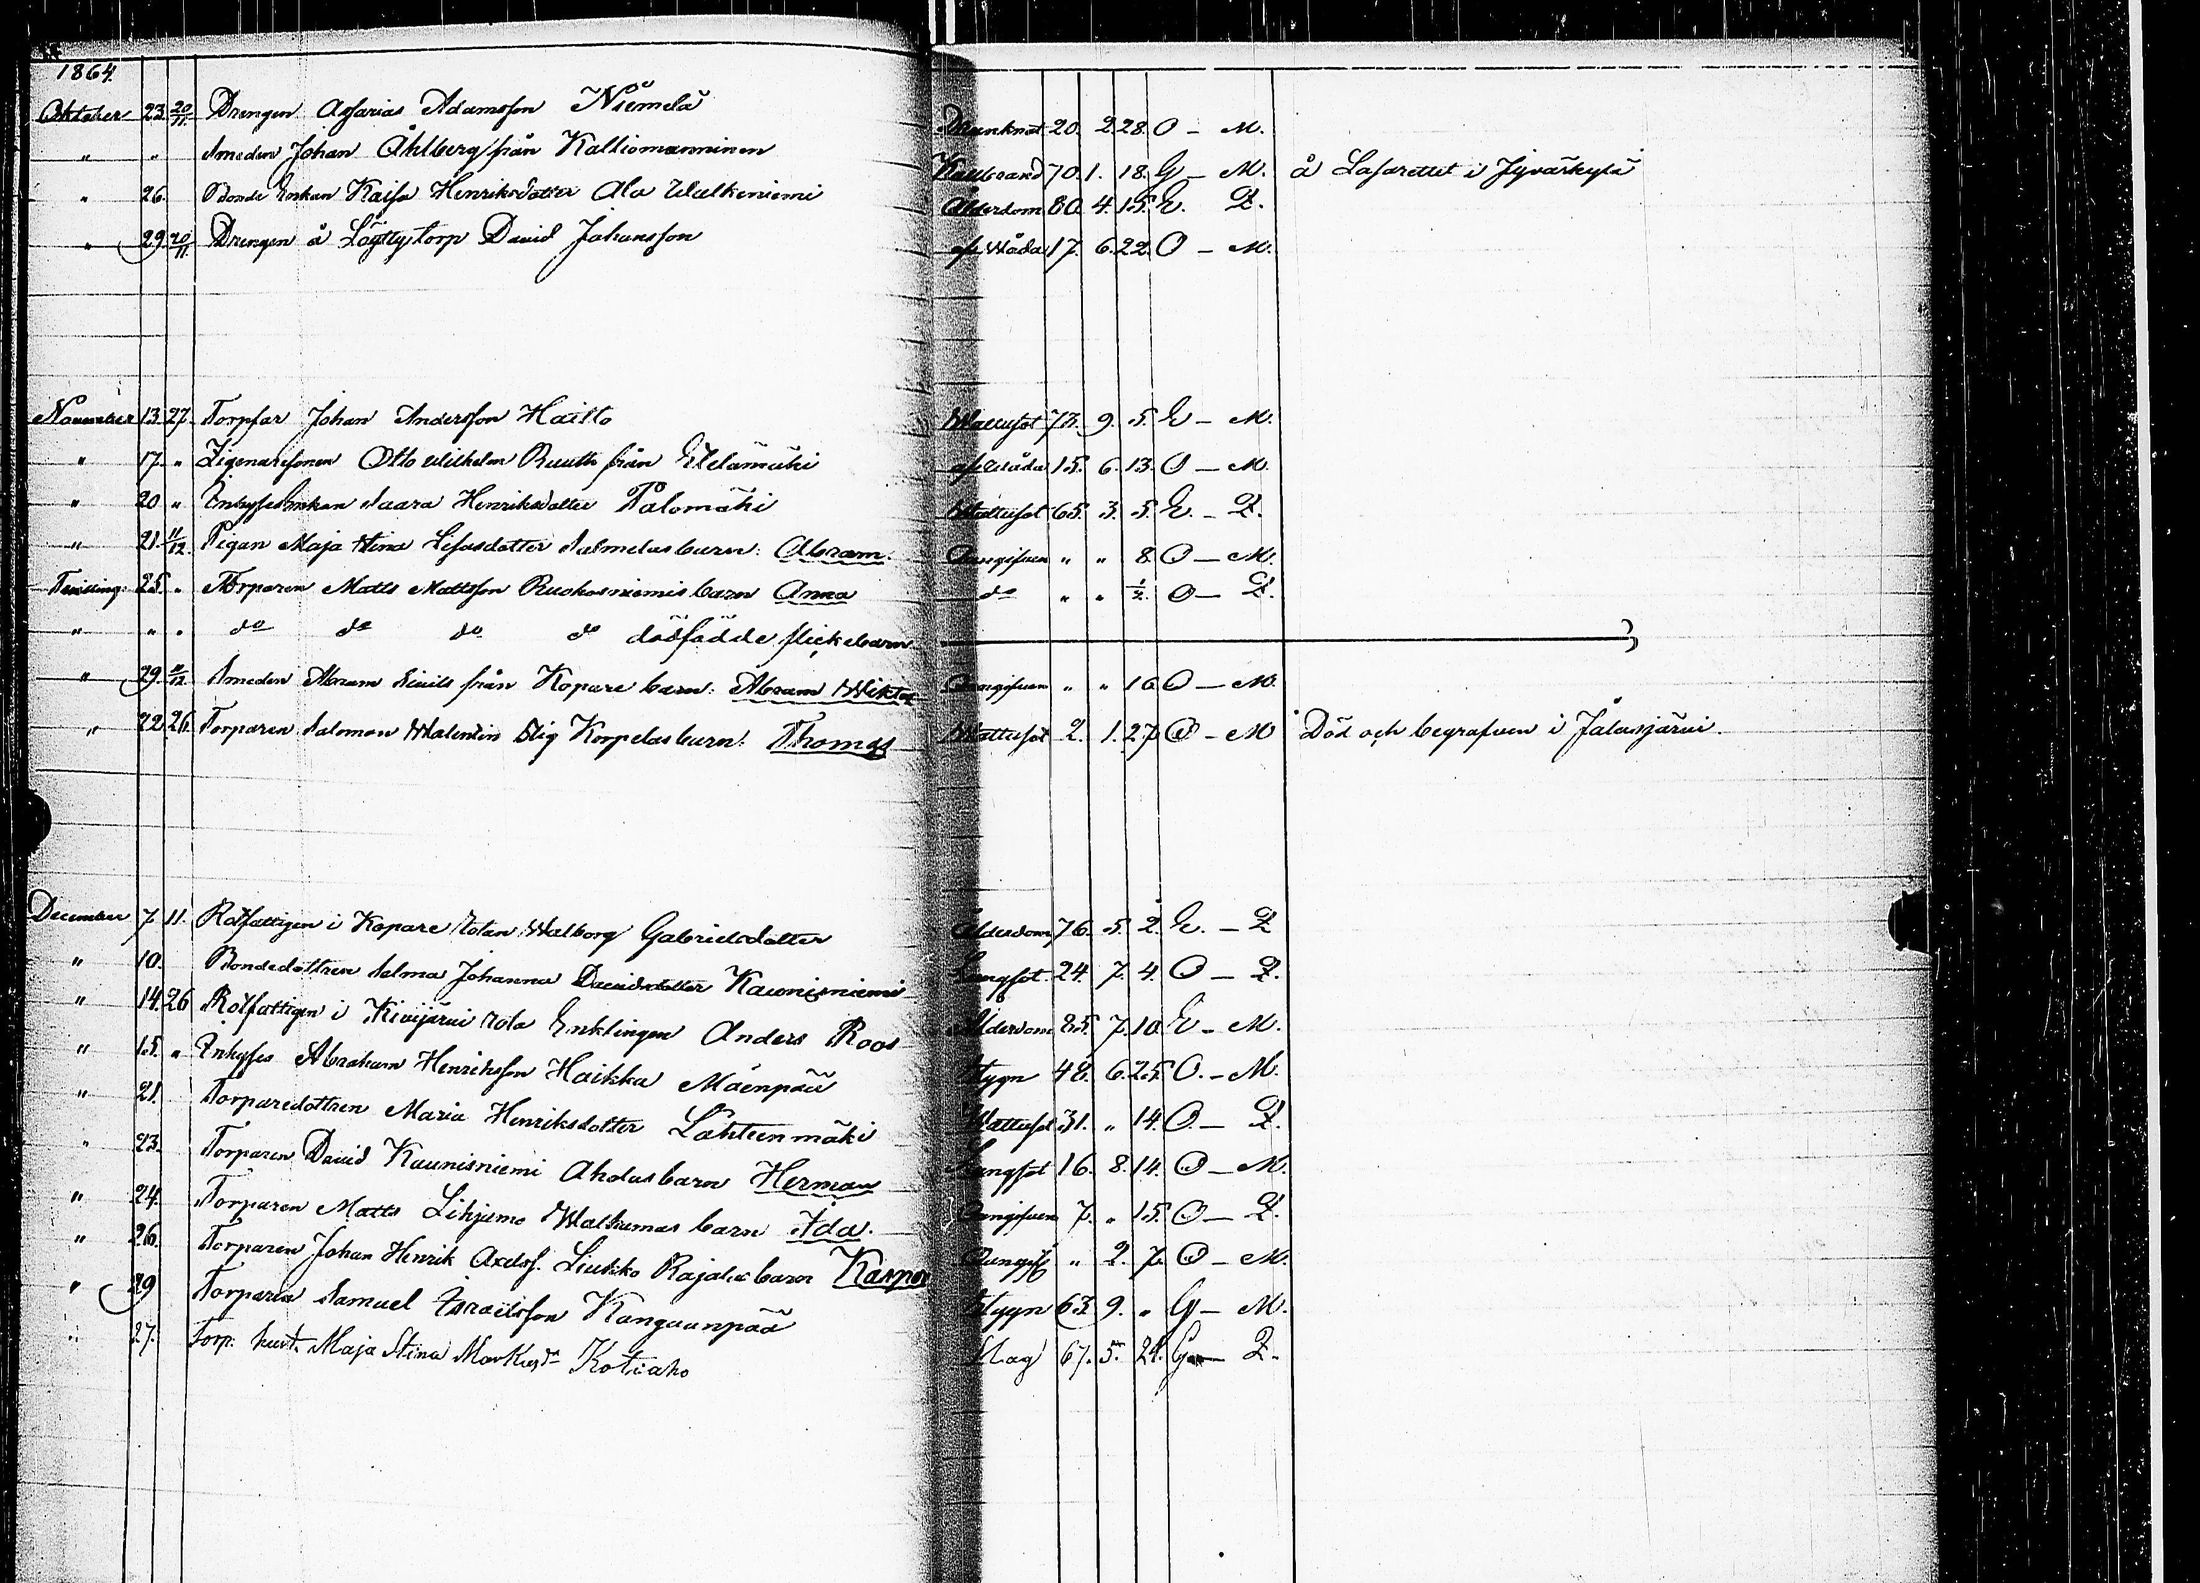 1864.
Oktober 23 20/11 Drengen Assarias Adamsson Niemelä Drunknat 20. 2. 28. O – M.
" " Smeden Johan Åhlberg från Kalliomanninen Kallbrand 70. 1. 18. G – M. å Lasarettet i Jyväskylä
" 26. Bonde Enkan Kaisa Henriksdotter Ala Walkeniemi Ålderdom 80. 4. 15. E. Q.
" 29 20/11 Drengen å Lögtty torp David Johansson af Våda 17. 6. 22. O – M.
November 13. 27. Torpfar Johan Andersson Hautto Wattusot 73. 9. 5. E – M.
" 17. " Zigenaresonen Otto Wilhelm Ruuth från Etelämäki af Våda 15. 6. 13. O – M.
" 20 " Inhyses Enkan Saara Henriksdotter Palomäki Wattusot 65. 3. 5. E. – Q.
" 21. 11/12 Pigan Maja Stina Lisasdotter Salmelas barn: Abram. Oangifven " " 8. O – M.
Tvilling 25. " Torparen Matts Mattsson Ruokosniemis barn Anna do " " 1/2. O – Q.
" " " do do do do dödfödde flickebarn
" 29. 11/12 Smeden Abram Sivils från Kopare barn: Abram Wiktor Oangifven " " 16 O – M.
" 22 26. Torparen Salomon Walentin Stig Korpelas barn: Thomas Wattusot 2. 1. 27. O – M Död och begrafven i Jalasjärvi.
December 7. 11. Rotfattigen i Kopare rotan Walborg Gabrielsdotter Ålderdom 76. 5. 2. E. – Q
" 10. Bondedottren Salma Johanna Davidsdotter Kaunisniemi Lungsot. 24. 7. 4. O – Q.
" 14. 26 Rotfattigen i Kivijärvi rota Enklingen Anders Roos Ålderdom 85. 7. 10. E – M.
" 15. " Inhyses Abraham Henriksson Haikka Mäenpää Stygn 48. 6. 25. O. – M.
" 21. Torparedottren Maria Henriksdotter Lähteenmäki Wattusot 31. " 14. O. – Q.
" 23. Torparen David Kaunisniemi Aholas barn Herman Lungsot 16. 8. 14. O – M.
" 24. Torparen Matts Lihjamo Walkamas barn Ida. Oangifven 7. " 15. O – Q.
" 26. Torparen Johan Henrik Axelss. Liukko Rajalas barn Kasper Oangif. " 2. 7. O – M.
" 29 Torparen Samuel Israelsson Kangaanpää Stygn 63. 9. " G – M.
" 27. Torp. hust. Maja Stina Markusdr Kotiaho Slag 67. 5. 21. G – Q.